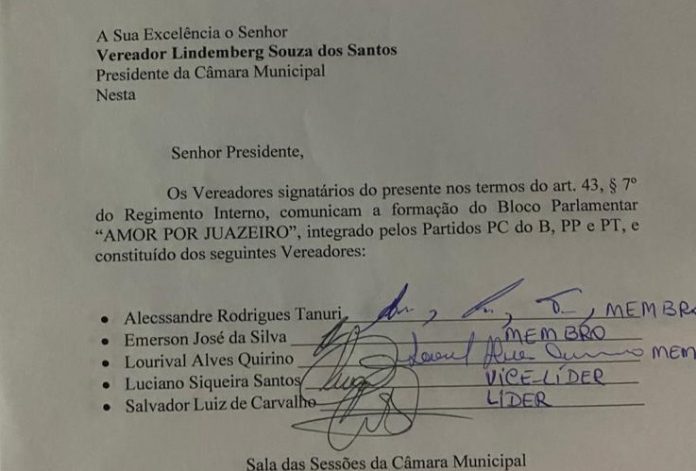 A Sua Excelência o Senhor
Vereador Lindemberg Souza dos Santos
Presidente da Câmara Municipal
Nesta
Senhor Presidente,
Os Vereadores signatários do presente nos termos do art. 43, § 7º
do Regimento Interno, comunicam a formação do Bloco Parlamentar
“AMOR POR JUAZEIRO”, integrado pelos Partidos PC do B, PP e PT, e
constituído dos seguintes Vereadores:
• Alecssandre Rodrigues Tanuri, MEMBRO
• Emerson José da Silva MEMBRO
• Lourival Alves Quirino MEM
• Luciano Siqueira Santos VICE-LÍDER
• Salvador Luiz de Carvalho LÍDER
Sala das Sessões da Câmara Municipal